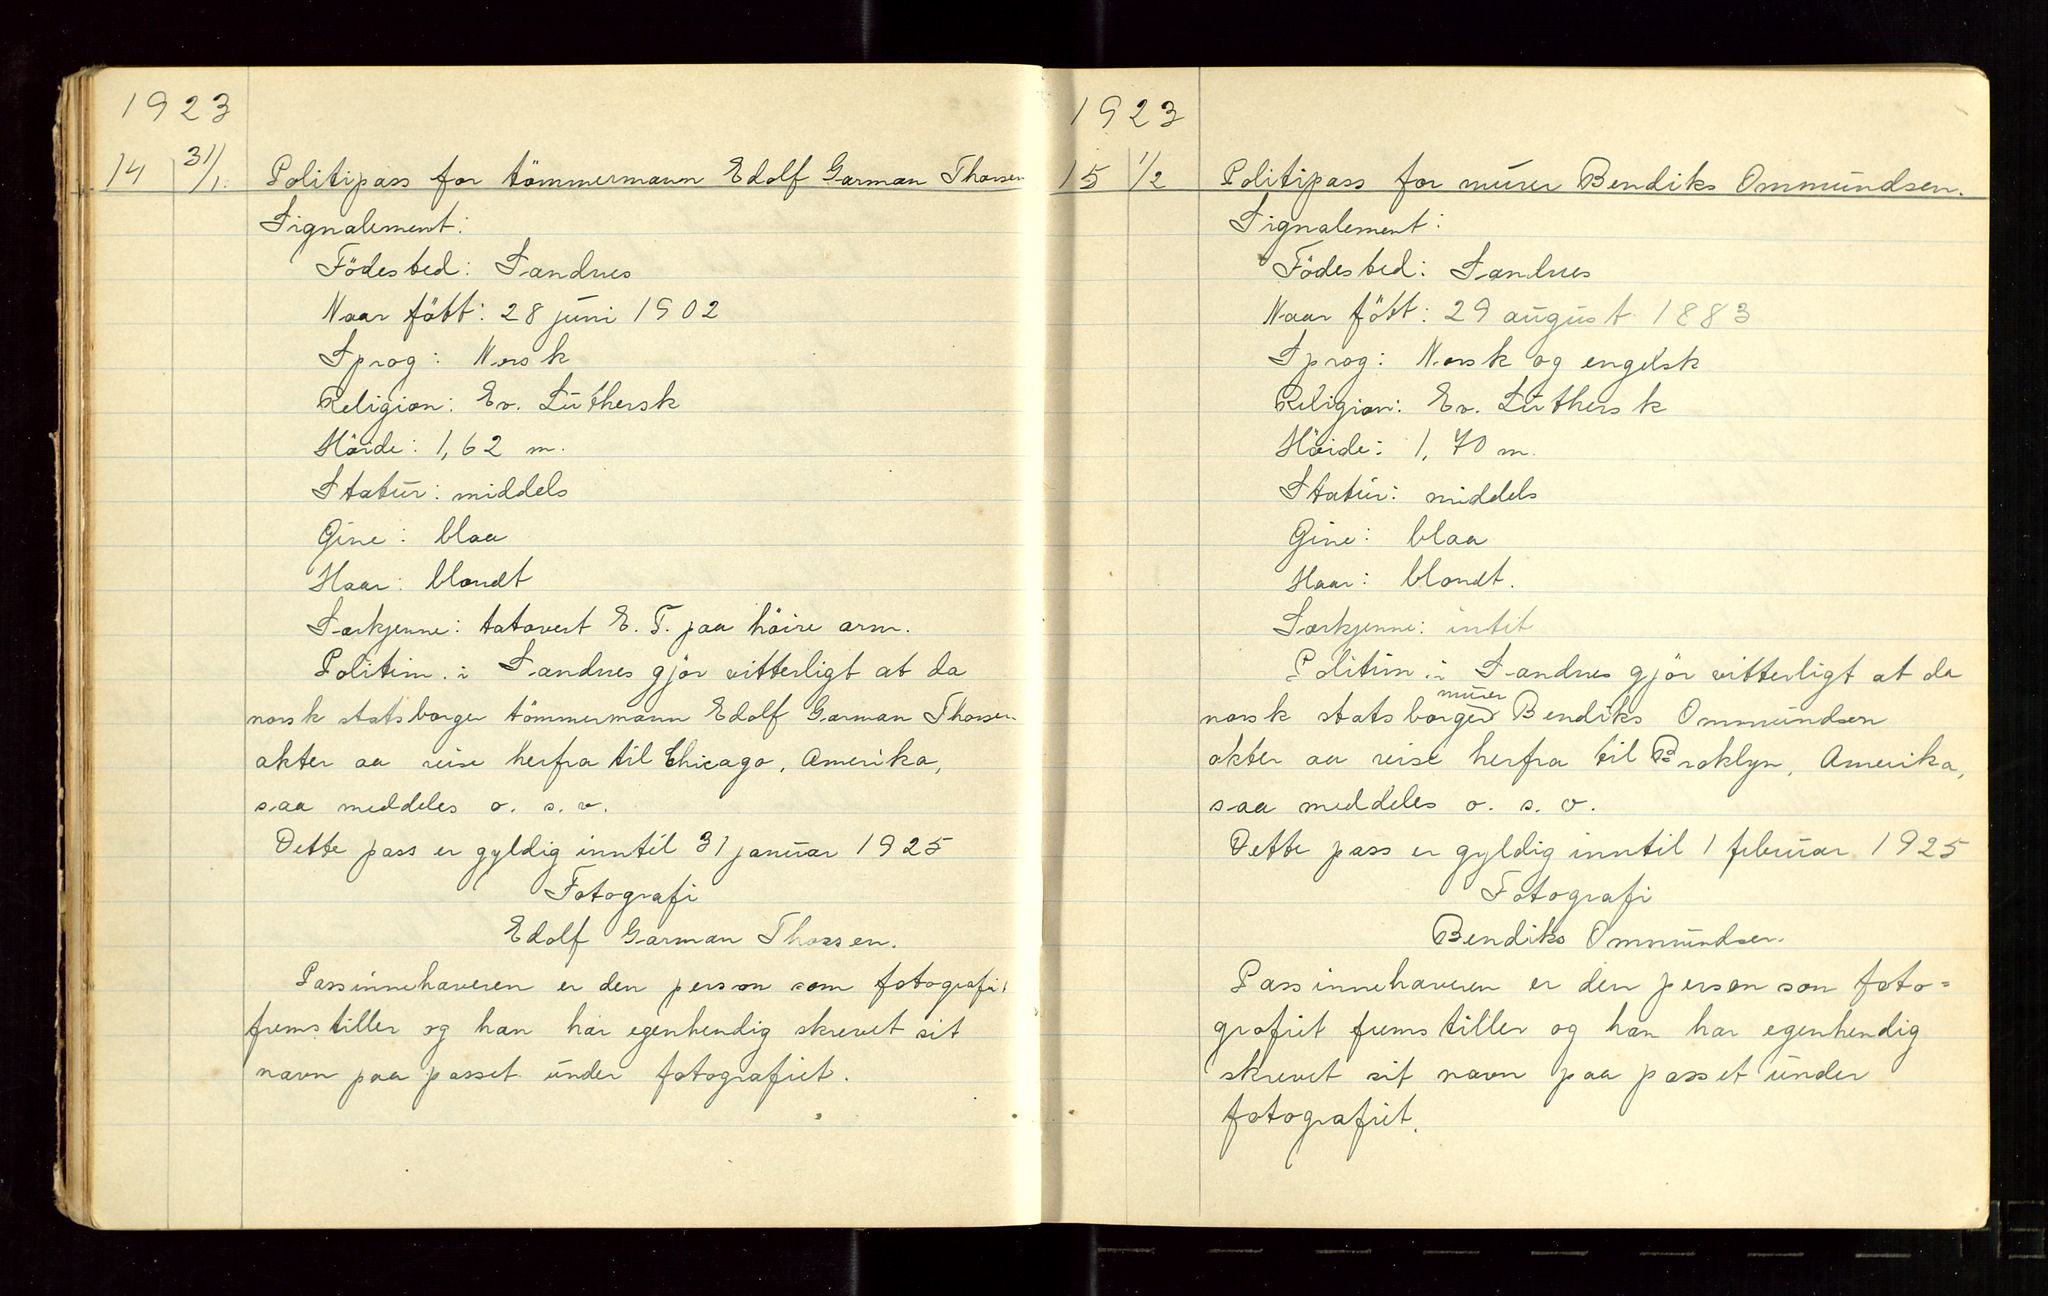 1923
14 31/1. Politipass for tömmermann Edolf Garman Thorsen
Signalement:
Födested: Sandnes
Naar fött: 28 juni 1902
Sprog: Norsk
Religion: Ev. Luthersk
Höide: 1,62 m.
Statur: middels
Öine: blaa
Haar: blondt
Særkjenne: tatovert E. T. paa höire arm.
Politim. i Sandnes gjör vitterligt at da
norsk statsborger tömmermann Edolf Garman Thorsen
akter aa reise herfra til Chicago, Amerika,
saa meddeles o. s. v.
Dette pass er gyldig inntil 31 januar 1925
Fotografi
Edolf Garman Thorsen.
Passinnehaveren er den person som fotografi
fremstiller og han har egenhendig skrevet sit
navn paa passet under fotografiet.
1923
15 1/2 Politipass for murer Bendiks Ommundsen.
Signalement:
Födested: Sandnes
Naar fött: 29 august 1883
Sprog: Norsk og engelsk
Religion: Ev. Luthersk
Höide: 1,70 m.
Statur: middels
Öine: blaa
Haar: blondt.
Særkjenne: intet
Politim. i Sandnes gjör vitterligt at da
murer
norsk statsborger Bendiks Ommundsen
akter aa reise herfra til Broklyn, Amerika,
saa meddeles o. s. v.
Dette pass er gyldig inntil 1 februar 1925
Fotografi
Bendiks Ommundsen.
Passinnehaveren er den person som foto=
grafiet fremstiller og han har egenhendig
skrevet sit navn paa passet under
fotografiet.